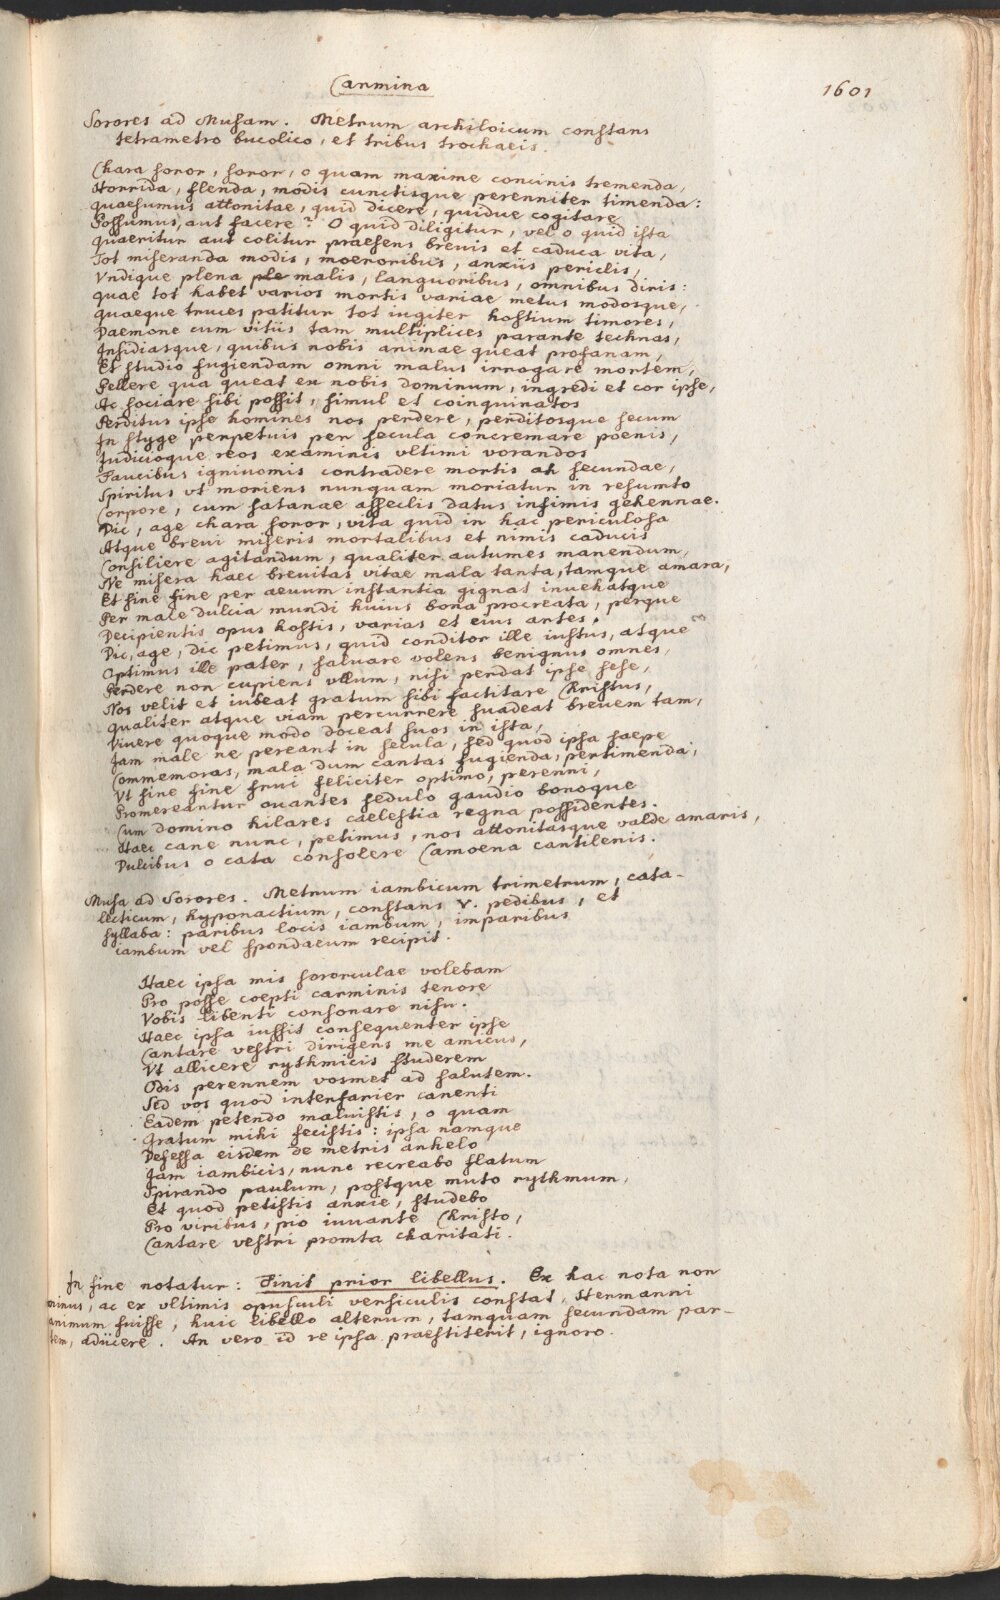 Carmina
1601
Sorores ad Musam. Metrum archiloicum constans
tetrametro bucolico, et tribus trochaeis.
Chara soror, soror, o quam maxime concinis tremenda,
Horrida, flenda, modis cunctisque perenniter timenda:
quaesumus attonitae, quid dicere, quidue cogitare
Possumus, aut facere? O quid diligitur, vel o quid ista
quaeritur aut colitur praesens breuis et caduca vita,
Tot miseranda modis, moeroribus, anxiis periclis,
Vndique plena malis, languoribus, omnibus diris:
quae tot habet varios mortis variae metus modosque,
quaeque truces patitur tot iugiter hostium timores,
Daemone cum vitiis tam multiplices parante technas,
Insidiasque, quibus nobis animae queat profanam,
Et studio fugiendam omni malus irrogare mortem,
Pellere qua queat ex nobis dominum, ingredi et cor ipse,
Ac sociare sibi possit, simul et coinquinatos
Perditus ipse homines nos perdere, perditosque secum
In styge perpetuis per secula concremare poenis,
Iudicioque reos examinis vltimi vorandos
Faucibus igniuomis contradere mortis ah secundae,
Spiritus vt moriens nunquam moriatur in resumto
Corpore, cum satanae asseclis datus infimis gehennae.
Dic, age chara soror, vita quid in hac periculosa
Atque breui miseris mortalibus et nimis caducis
Consiliere agitandum, qualiter autumes manendum,
Ne misera haec breuitas vitae mala tanta, tamque amara,
Et sine fine per aeuum instantia gignat inuehatque
Per male dulcia mundi huius bona procreata, perque
Decipientis opus hostis, varias et eius artes.
Dic, age, dic petimus, quid conditor ille iustus, atque
Optimus ille pater, saluare volens benignus omnes,
Perdere non cupiens vllum, nisi perdat ipse sese,
Nos velit et iubeat gratum sibi factitare Christus,
qualiter atque viam percurrere suadeat breuem tam,
Viuere quoque modo doceat suos in ista,
Iam male ne pereant in secula, sed quod ipsa saepe
Commemoras, mala dum cantas fugienda, pertimenda,
Vt sine fine frui feliciter optimo, perenni,
Promereantur ouantes sedulo gaudio bonoque
Cum domino hilares caelestia regna possidentes.
Haec cane nunc, petimus, nos attonitasque valde amaris,
Dulcibus o cata consolere Camoena cantilenis.
Musa ad Sorores. Metrum iambicum trimetrum, cata-
lecticum, hyponactium, constans v. pedibus, et
syllaba: paribus locis iambum, imparibus
iambum vel spondaeum recipit.
Haec ipsa mis sororculae volebam
Pro posse coepti carminis tenore
Vobis libenti consonare nisu.
Haec ipsa iussit consequenter ipse
Cantare vestri dirigens me amicus,
Vt allicere rythmicis studerem
Odis perennem vosmet ad salutem.
Sed vos quod intersarier canenti
Eadem petendo maluistis, o quam
Gratum mihi fecistis: ipsa namque
Defessa eisdem de metris anhelo
Iam iambicis, nunc recreabo flatum
Spirando paulum, postque muto rythmum,
Et quod petistis anxie, studebo
Pro viribus, pio iuuante Christo,
Cantare vestri promta charitati.
In fine notatur: Finit prior libellus. Ex hac nota non
minus, ac ex vltimis opusculi versiculis constat, Hermanni
animum fuisse, huic libello alterum, tamquam secundam par-
tem, adiicere. An vero id re ipsa praestiterit, ignoro.